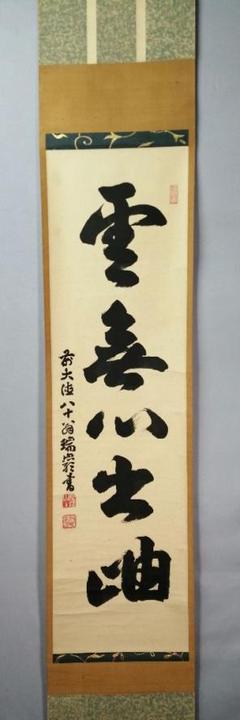 雲無心出岫
前大徳八十翁瑞巌書